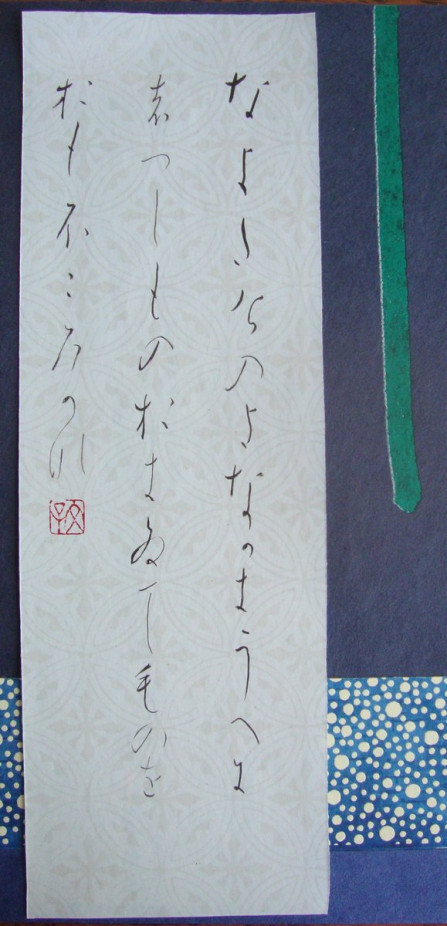 なよたけのよなかきうへに
はつしものおきゐてものを
おもふころかな